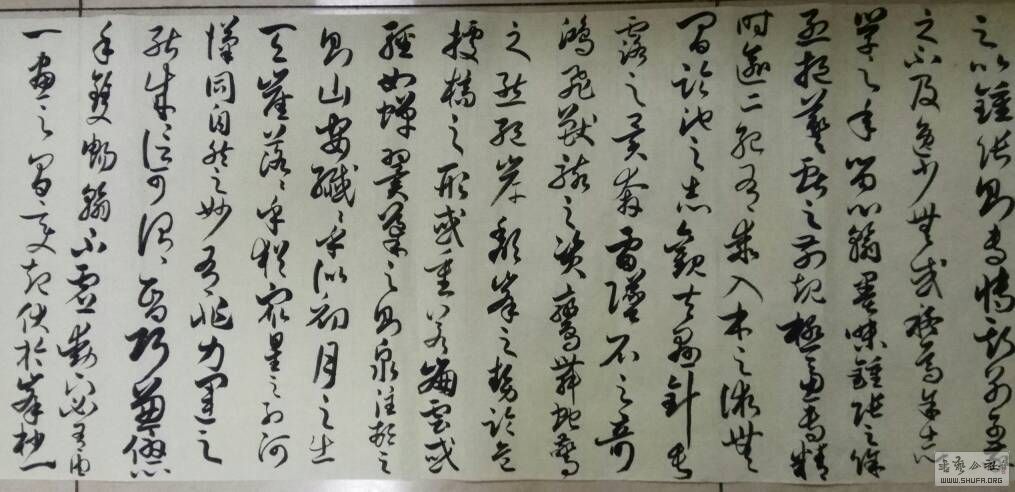 之以鍾張則專博斯別子敬
之不及逸少無或疑焉余志
學之年留心翰墨味鍾張之餘
烈挹羲獻之前規極慮專精
時逾二紀有乖入木之術無
間臨池之志觀夫懸針垂
露之異奔雷墜石之奇
鴻飛獸駭之資鸞舞蛇驚
之態絕岸頹峯之勢臨危
據槁之形或重若崩雲或
輕如蟬翼導之則泉注頓之
則山安纖〻乎似初月之出
天崖落〻乎猶衆星之列河
漢同自然之妙有非力運之
能成信可謂智巧兼優心
手雙暢翰不虛動下必有由
一畫之間變起伏於峯杪一
WWW.SHUFA.ORG